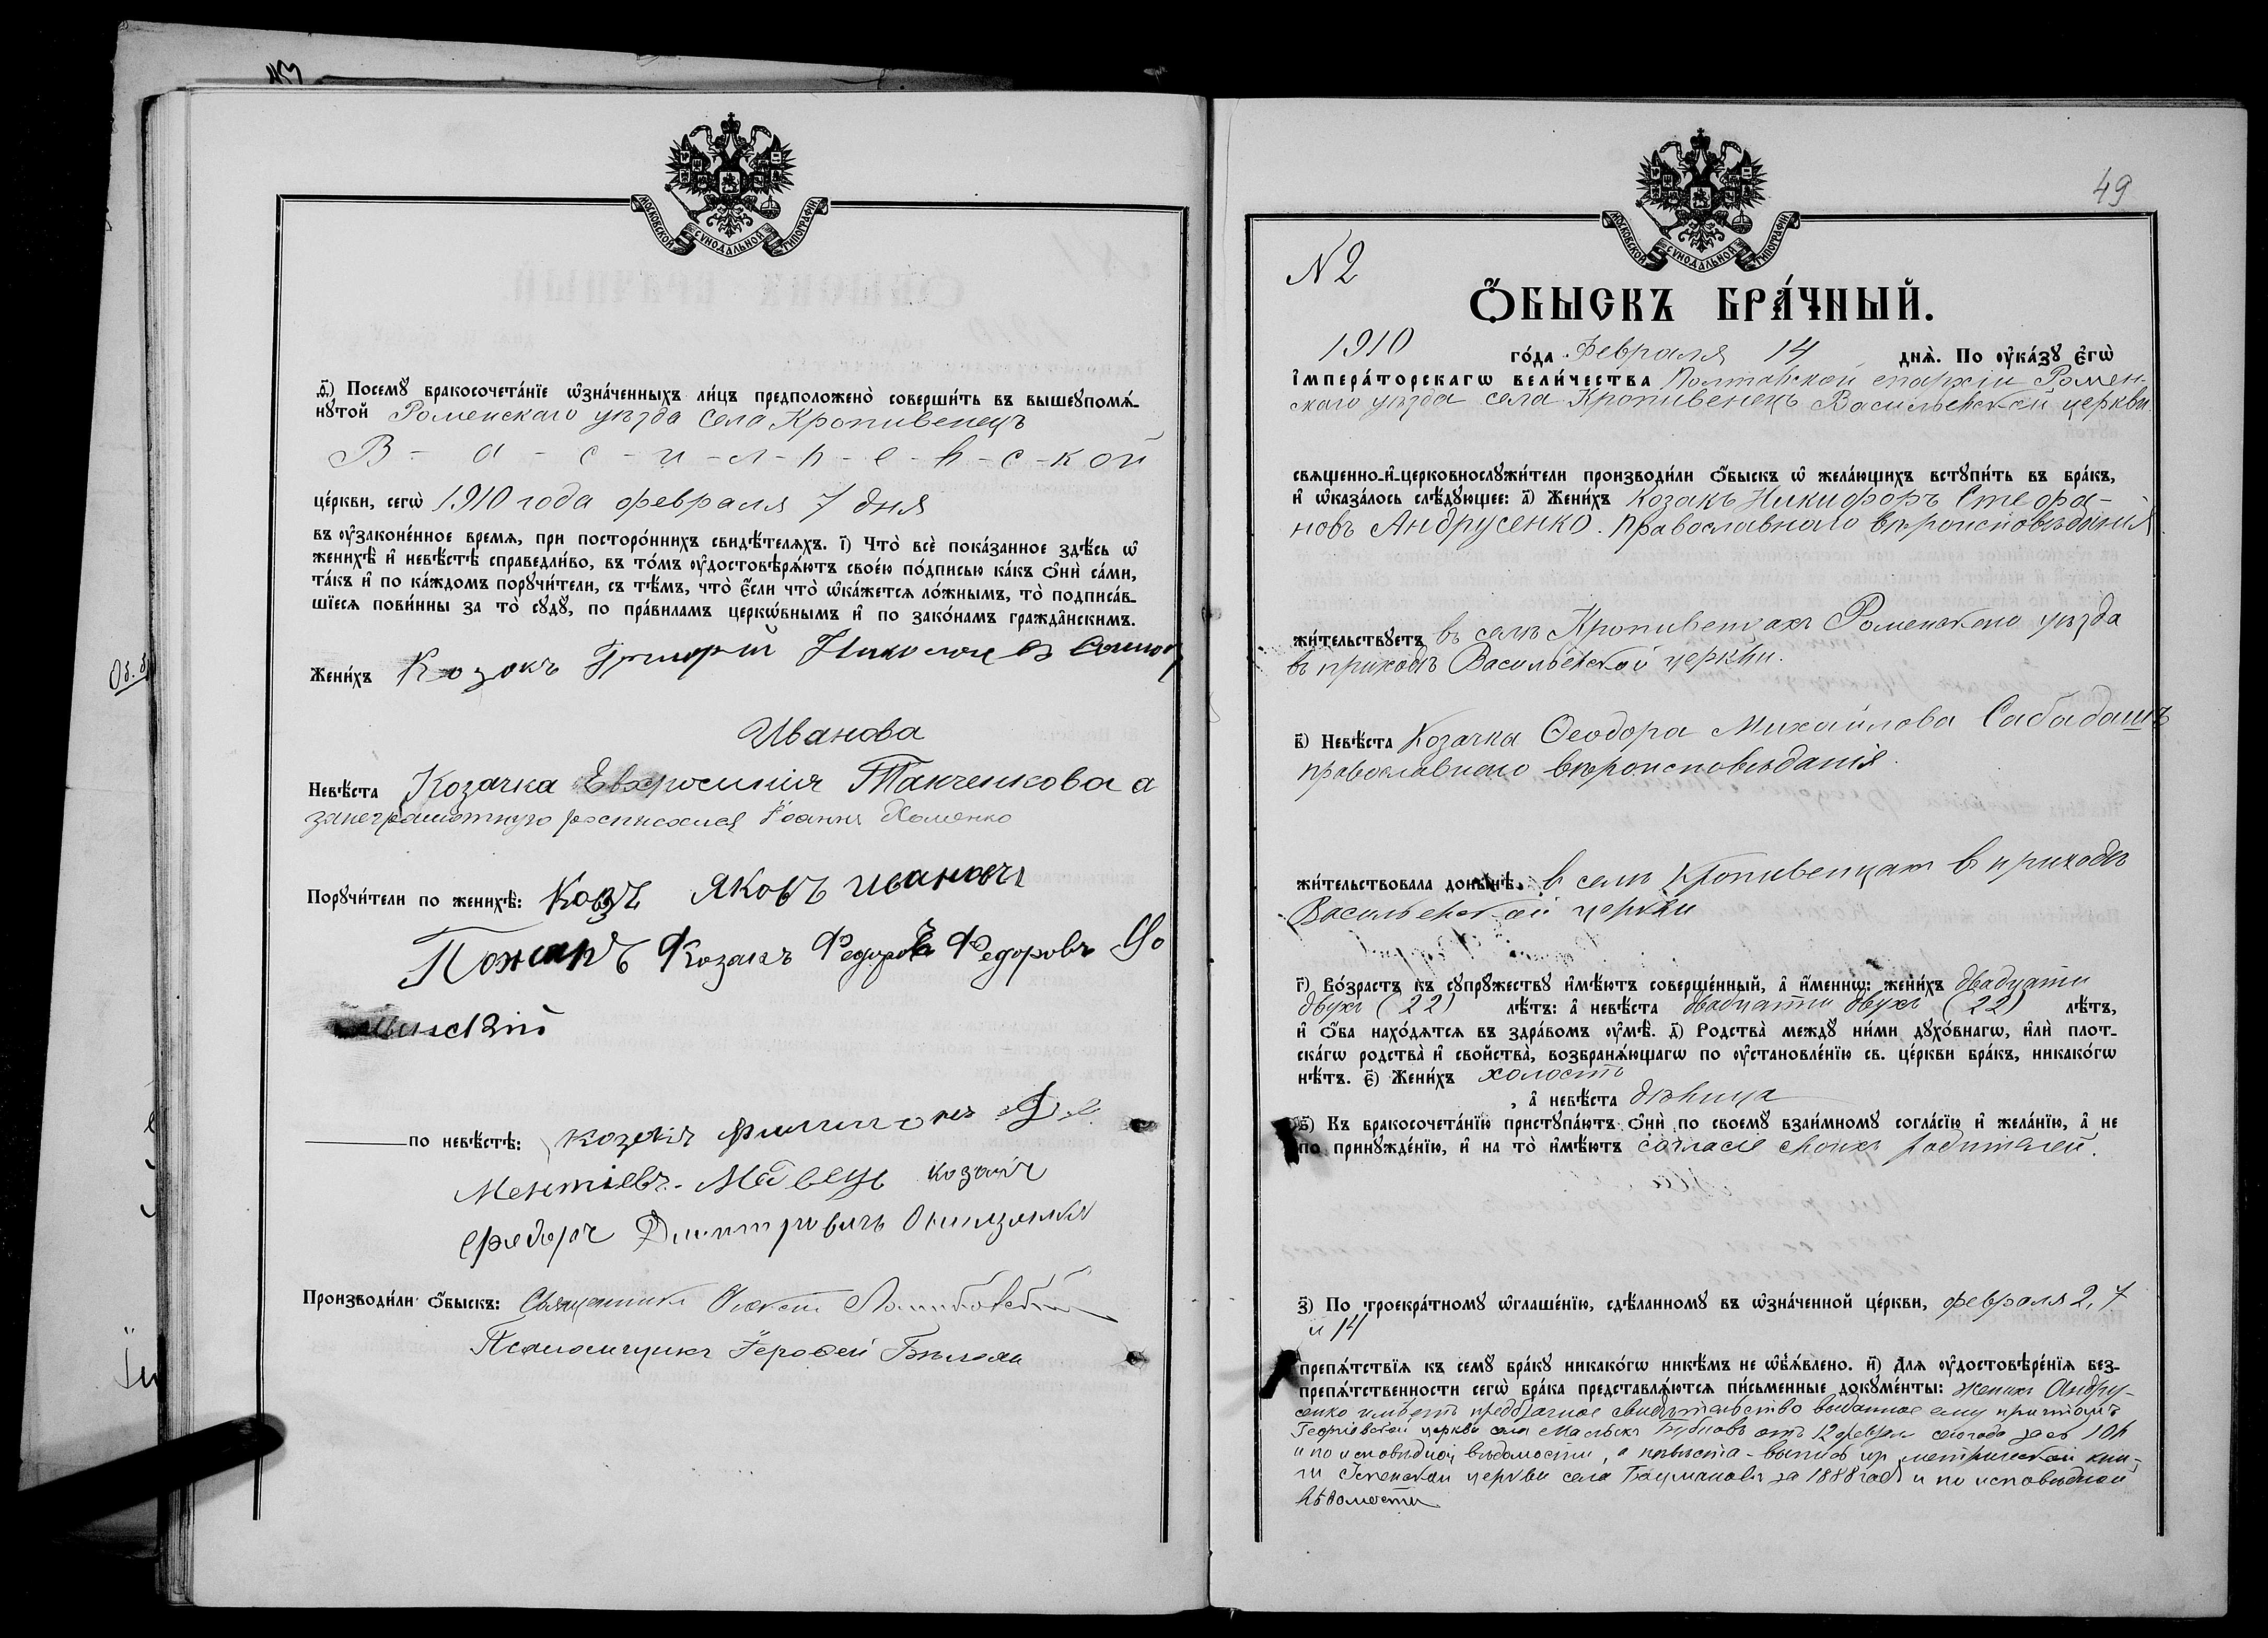 МОСКОВСКОЙ СѴНОДАЛЬНОЙ ТИПОГРАФІИ
д҃) Посемꙋ бракосочета́нїе ѡ҆зна́ченныхъ ли́цъ предположено̀ соверши́ть въ вышеꙋпомѧ́-
нꙋтой Роменскаго уѣзда села Кропивенецъ
В - а - с - и - л - ь - е - в - с - кой
це́ркви, сегѡ̀ 1910 года февраля 7 дня
въ ᲂу҆зако́ненное время, при посторо́ннихъ свидѣ́теляхъ. і҃) Что̀ всѐ пока́занное здѣ́сь ѡ҆
женихѣ̀ и҆ невѣ́стѣ справедли́во, въ то́мъ ᲂу҆достовѣрѧ́ютъ свое́ю по́дписью ка́къ ѻ҆нѝ са́ми,
та́къ и҆ по ка́ждомъ порꙋчи́тели, съ тѣ́мъ, что̀ є҆́сли что̀ ѡ҆ка́жется ло́жнымъ, то̀ подписа́в-
шїеся пови́нны за то̀ сꙋдꙋ̀, по пра́виламъ церкѡ́внымъ и҆ по зако́намъ гражда̂нскимъ.
Жени́хъ Козакъ Григорій Николаевъ
Иванова
Невѣ́ста Козачка Евфросинія Танченкова а
за неграмотную росписался Іоаннъ Хоменко
Порꙋчи́тели по женихѣ̀: Козъ Яковъ Ивановъ
Пожаръ Козакъ Федоровъ Федоровъ
по невѣ́стѣ: козакъ
Козакъ
Федоръ Дмитровичъ
Производи́ли ѻ҆́быскъ: Священникъ
Псаломщикъ Іероѳей
49
МОСКОВСКОЙ СѴНОДАЛЬНОЙ ТИПОГРАФІИ
N 2
Ѻ҆́БЫСКЪ БРА́ЧНЫЙ.
1910 го́да Февраля 14 днѧ̀. По ᲂу҆ка́зꙋ є҆гѡ̀
і҆мпера́торскагѡ вели́чества Полтавской епархіи Ромен-
скаго уѣзда села Кропивенецъ Васильевской церкви
священно-и҆-церковнослꙋжи́тели производи́ли ѻ҆́быскъ ѡ҆ жела́ющихъ встꙋпи́ть въ бра́къ,
и҆ ѡ҆каза́лось слѣ́дꙋющее: а҃) Жени́хъ Козакъ Никифоръ Стефа-
новъ Андрусенко. православнаго вѣроисповѣданія
жи́тельствꙋетъ въ селѣ Кропивенцахъ Роменскаго уѣзда
въ приходѣ Васильевской церкви.
в҃) Невѣ́ста Козачка Ѳеодора Михайлова Сабадашъ
православнаго вѣроисповѣданія.
жи́тельствовала доны́нѣ въ селѣ Кропивенцахъ въ приходѣ
Васильевской церкви
г҃) Во́зрастъ къ сꙋпрꙋ́жествꙋ и҆мѣ́ютъ соверше́нный, а҆ и҆́менно: жени́хъ двадцати
двухъ (22) лѣ́тъ: а҆ невѣ́ста двадцати двухъ (22) лѣ́тъ,
и҆ ѻ҆́ба нахо́дятся въ здра́вомъ ᲂу҆мѣ̀. д҃) Родства̀ междꙋ̀ ни́ми дꙋхо́внагѡ, и҆лѝ плот-
ска́гѡ родства̀ и҆ свойства̀, возбранѧ́ющагѡ по ᲂу҆становле́нїю св. це́ркви бра́къ, никако́гѡ
нѣ́тъ. є҃) Жени́хъ холостъ
, а҆ невѣ́ста дѣвица
ѕ҃) Къ бракосочета́нїю пристꙋпа́ютъ ѻ҆нѝ по своемꙋ̀ взаи́мномꙋ согла́сїю и҆ жела́нїю, а҆ не
по принꙋжде́нїю, и҆ на то̀ и҆мѣ́ютъ согласіе своихъ родителей.
з҃) По троекра́тномꙋ ѡ҆глаше́нїю, сдѣ́ланномꙋ въ ѡ҆зна́ченной це́ркви, февраля 2, 7
и 14
препѧ́тствїя къ семꙋ̀ бра́кꙋ никако́гѡ никѣ́мъ не ѡ҆б̾ѧ́влено. и҃) Для ᲂу҆достовѣре́нїя без-
препѧ́тственности сегѡ̀ бра́ка представлѧ́ются пи́сьменные докꙋме́нты: женихъ Андру-
сенко имѣетъ предбрачное свидѣтельство выданное ему причтомъ
Георгіевской церкви села Малыхъ Бубновъ отъ 12 февраля сего года за №
и по исповѣдной вѣдомости, а невѣста - выпись изъ метрической кни-
ги Успенской церкви села за 1888 годъ и по исповѣдной
вѣдомости